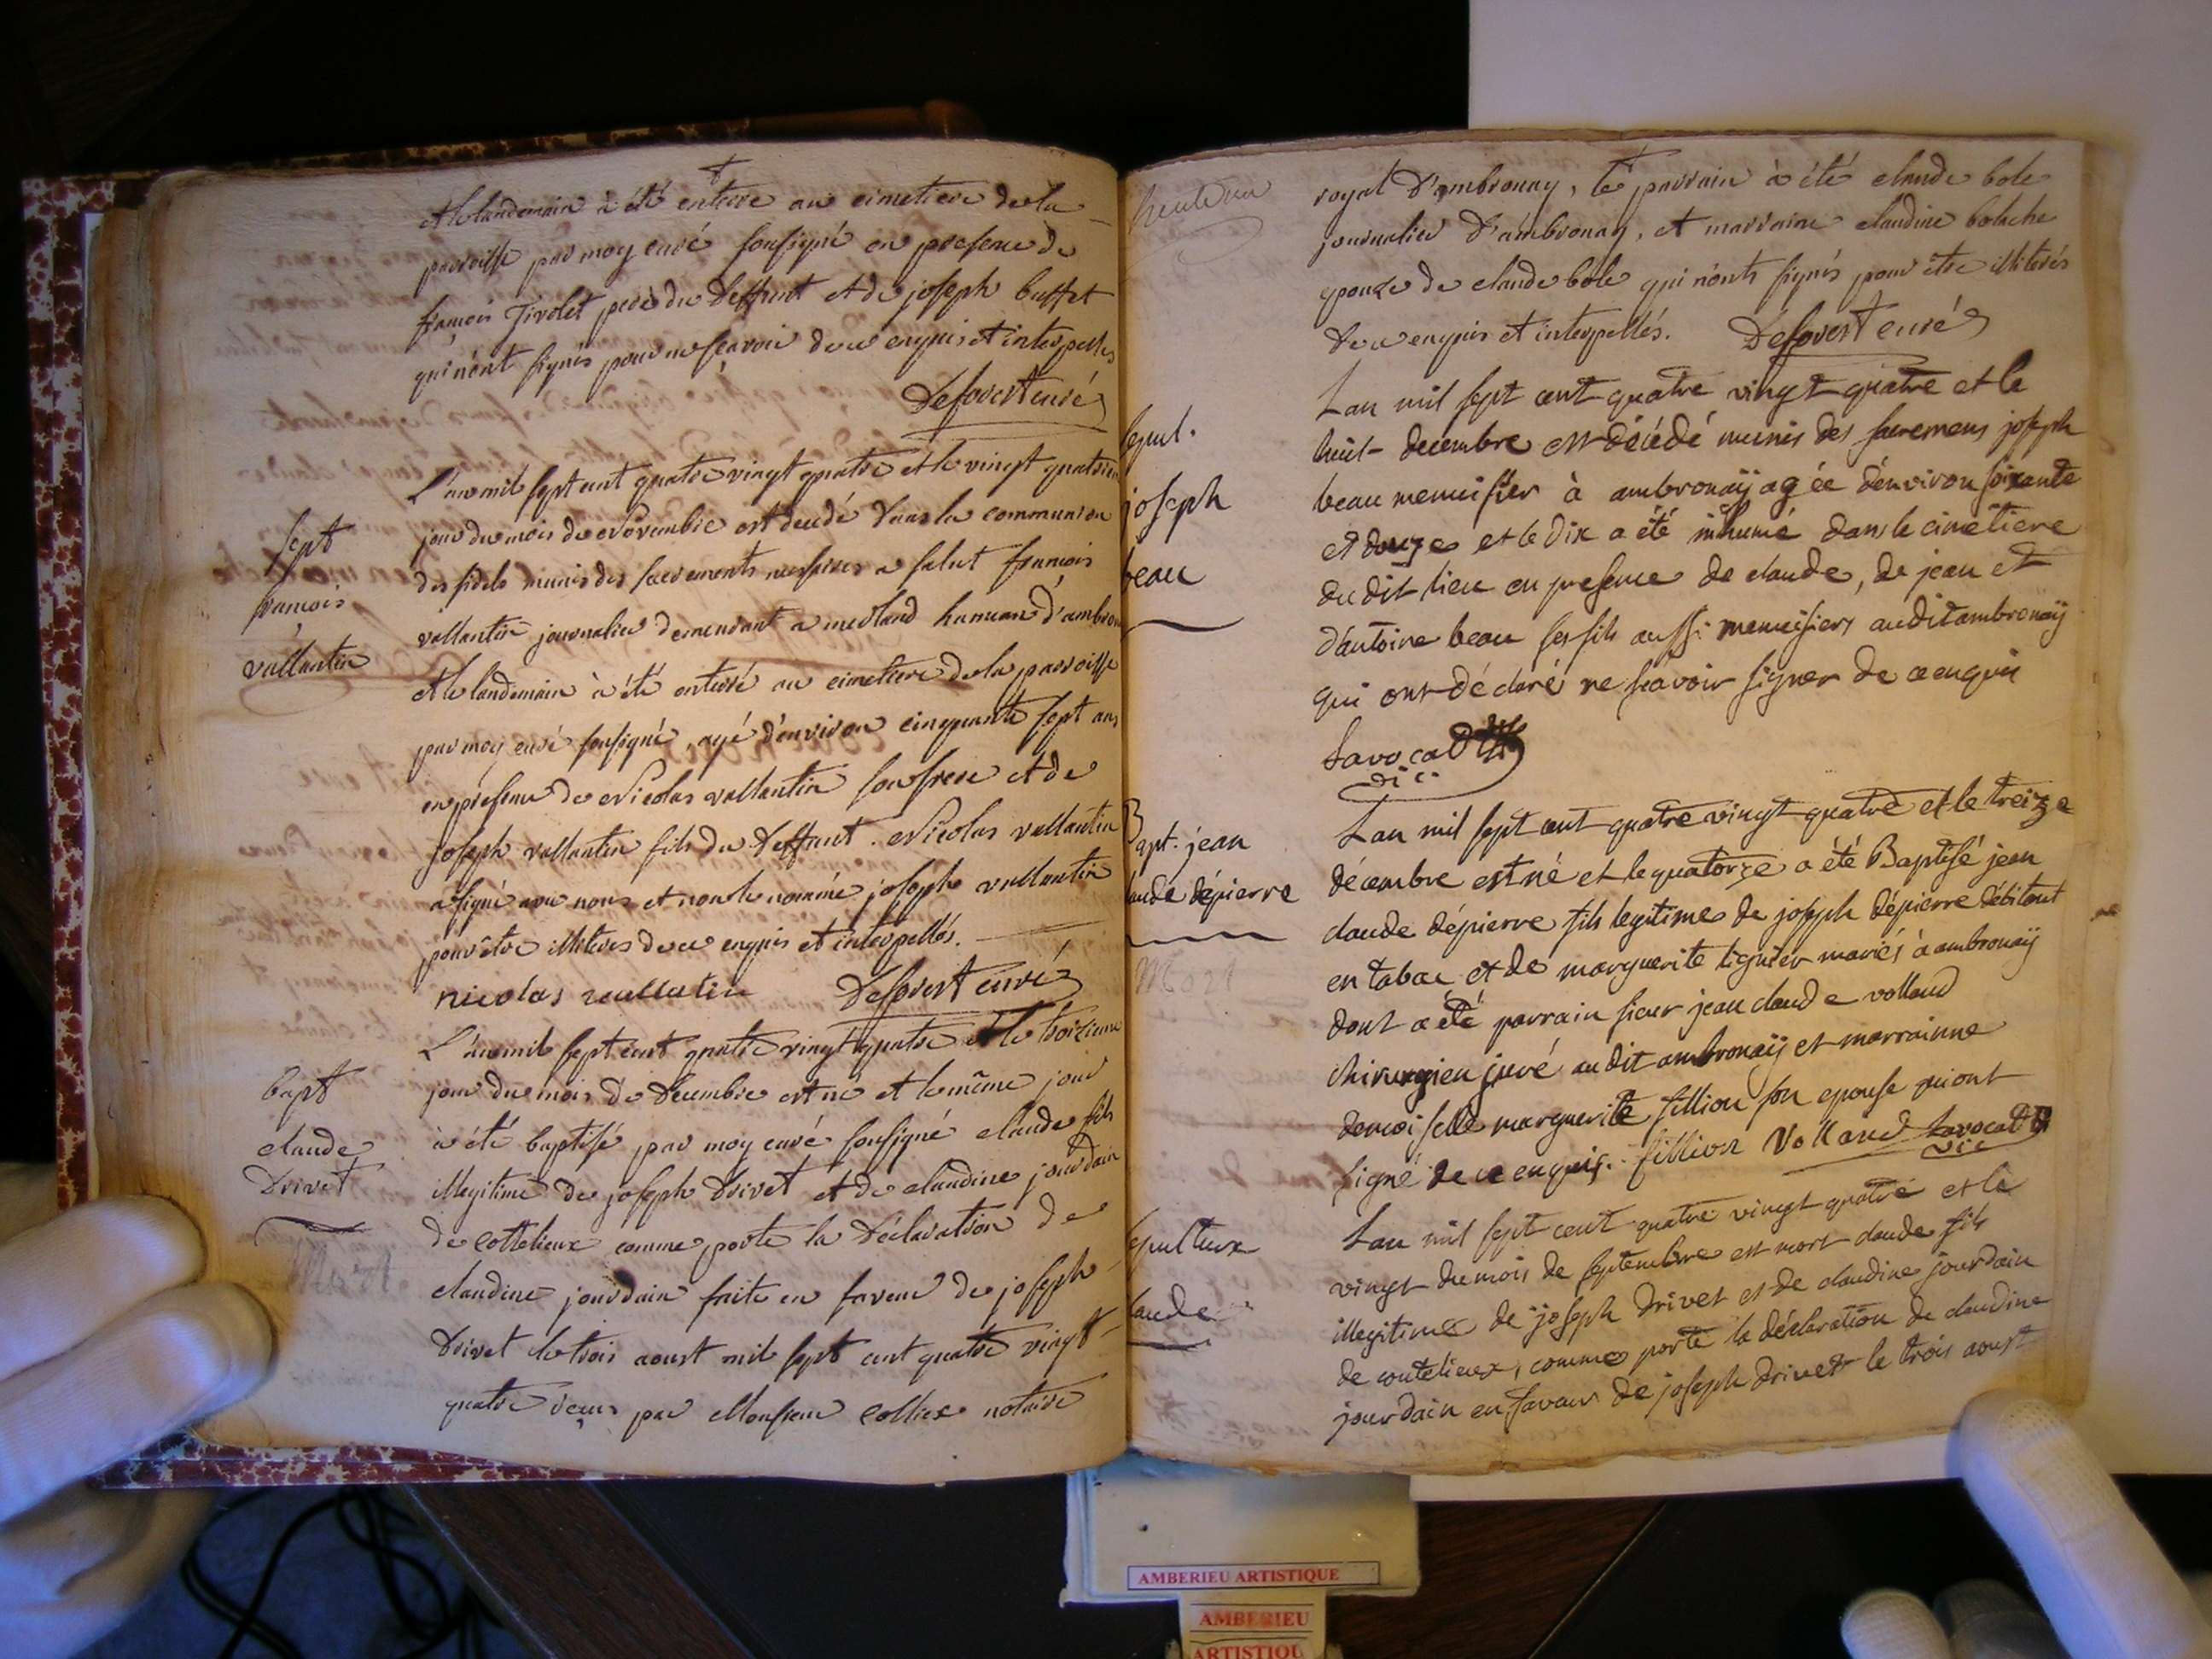 et le landemain à été enterré au cimetiere de la
parroisse par moy curé soussigné en presence de
françois Tivolet pere du deffunt et de joseph buffet
qui n'ont signés pour ne sçavoir de ce enquis et interpellés
Deforest curé
L'an mil sept cent quatre vingt quatre et le vingt quatrieme
jour du mois de Novembre est decedé dans la communion
des fidels munis des sacrements a salut françois
vallantin journalier demeurant a hameau d'ambron
et le landemain à été enterré au cimetiere de la parroisse
par moy curé soussigné, agé d'environ cinquante sept ans
en presence de Nicolas vallantin son frere et de
joseph vallantin fils du deffunt. Nicolas vallantin
a signé avec nous et non le nommé joseph vallantin
pour être illiteres de ce enquis et interpellés.
nicolas vallatin Deforest curé
L'an mil sept cent quatre vingt quatre et le troizieme
jour du mois de decembre est né et le même jour
à été baptisé par moy curé soussigné claude fils
illegitime de joseph drivet et de claudine jourdain
de cottelieux comme porte la déclaration de
claudine jourdain faite en faveur de joseph
drivet le trois aoust mil sept cent quatre vingt
quatre par Monsieur notaire
sept
françois
vallantin
bapt
claude
Drivet
Mort.
royal d'ambronay, le parrain à été claude bole
journalier d'ambronay, et marraine claudine boluche
epouze de claude bole qui n'onts signés pour être illiterés
de ce enquis et interpellés. Deforest curé
Lan mil sept cent quatre vingt quatre et le
huit decembre est décédé munis des sacremens joseph
beau menuisier à ambronaÿ agée d'environ soixante
et douze et le dix a été inhumé dans le cimetiere
du dit lieu en presence de claude, de jean et
d'antoine beau ses fils aussi menuisiers audit ambronaÿ
qui ont déclaré ne sçavoir signer de ce enquis
Lavocat
vic.
Lan mil sept cent quatre vingt quatre et le treize
décembre est né et le quatorze a été Baptisé jean
claude dépierre fils legitime de joseph dépierre débitant
en tabac et de marguerite mariés à ambronaÿ
dont a été parrain sieur jean claude volland
chirurgien juré audit ambronaÿ et marrainne
demoiselle marguerite fillion son epouse qui ont
signé de ce enquis. fillion Volland Lavocat
vic
Lan mil sept cent quatre vingt quatre et le
vingt du mois de septembre est mort claude fils
illegitime de joseph Drivet et de claudine jourdain
de coutelieux, comme porte la déclaration de claudine
jourdain en faveur de joseph drivet le trois aoust
sepul.
joseph
beau
Bapt. jean
claude dépierre
Mort
sepulture
claude
AMBERIEU ARTISTIQUE
AMBERIEU
ARTISTIQU